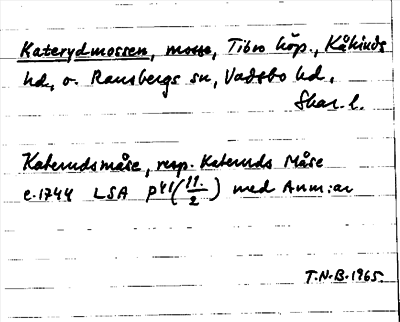 Katerydmossen, mosse, Tibro köp., Kåkinds
hd, o. Ransbergs sn, Vadsbo hd,
Skar. l.
Katerudsmåse, resp. Kateruds Måse
c. 1744 LSA P41 (11./2) med Anm:ar
T.N.B. 1965.